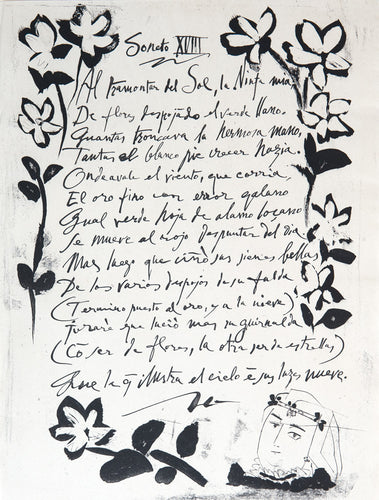 Soneto XVIII
Al tramontar del Sol, la Ninfa mia,
De flores despojado el verde llano,
Quantas troncava la hermosa mano,
Tantas el blanco pie crecer hazia.
Ondeavale el viento, que corria,
El oro fino con error galano
Qual verde hoja de alamo loçano
Se mueve al rojo despuntar del dia
Mas luego que ciñó sus sienes bellas
De los varios despojos de su falda
(Termino puesto al oro, y a la nieve)
juraré que lució mas su guirnalda
(Cõ ser de flores, la otra ser de estrellas)
Que la q̃ ilustra el cielo ẽ sus luzes nueve.